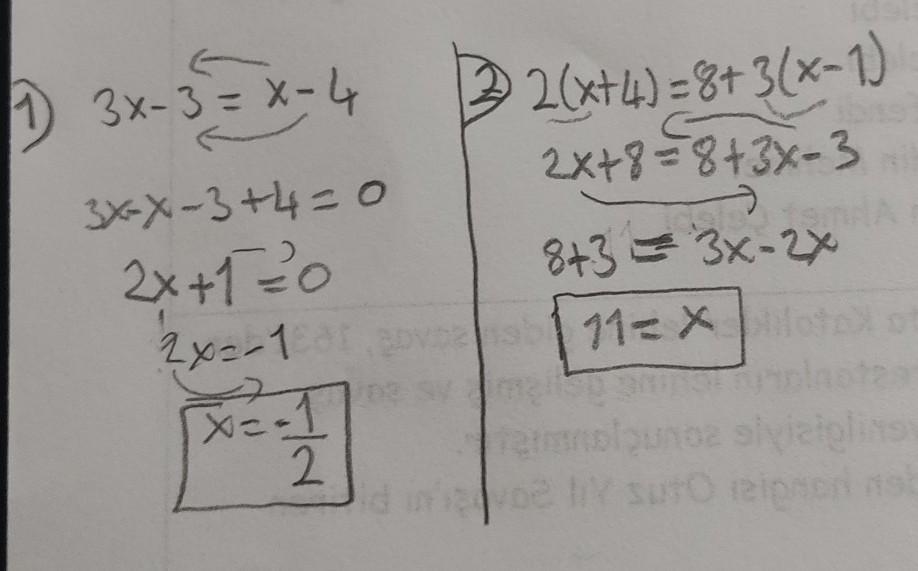 1) 3x-3=x-4
3x-x-3+4=0
2x+1=0
2x=-1
x=-1/2
2) 2(x+4)=8+3(x-1)
2x+8=8+3x-3
8+3=3x-2x
11=x